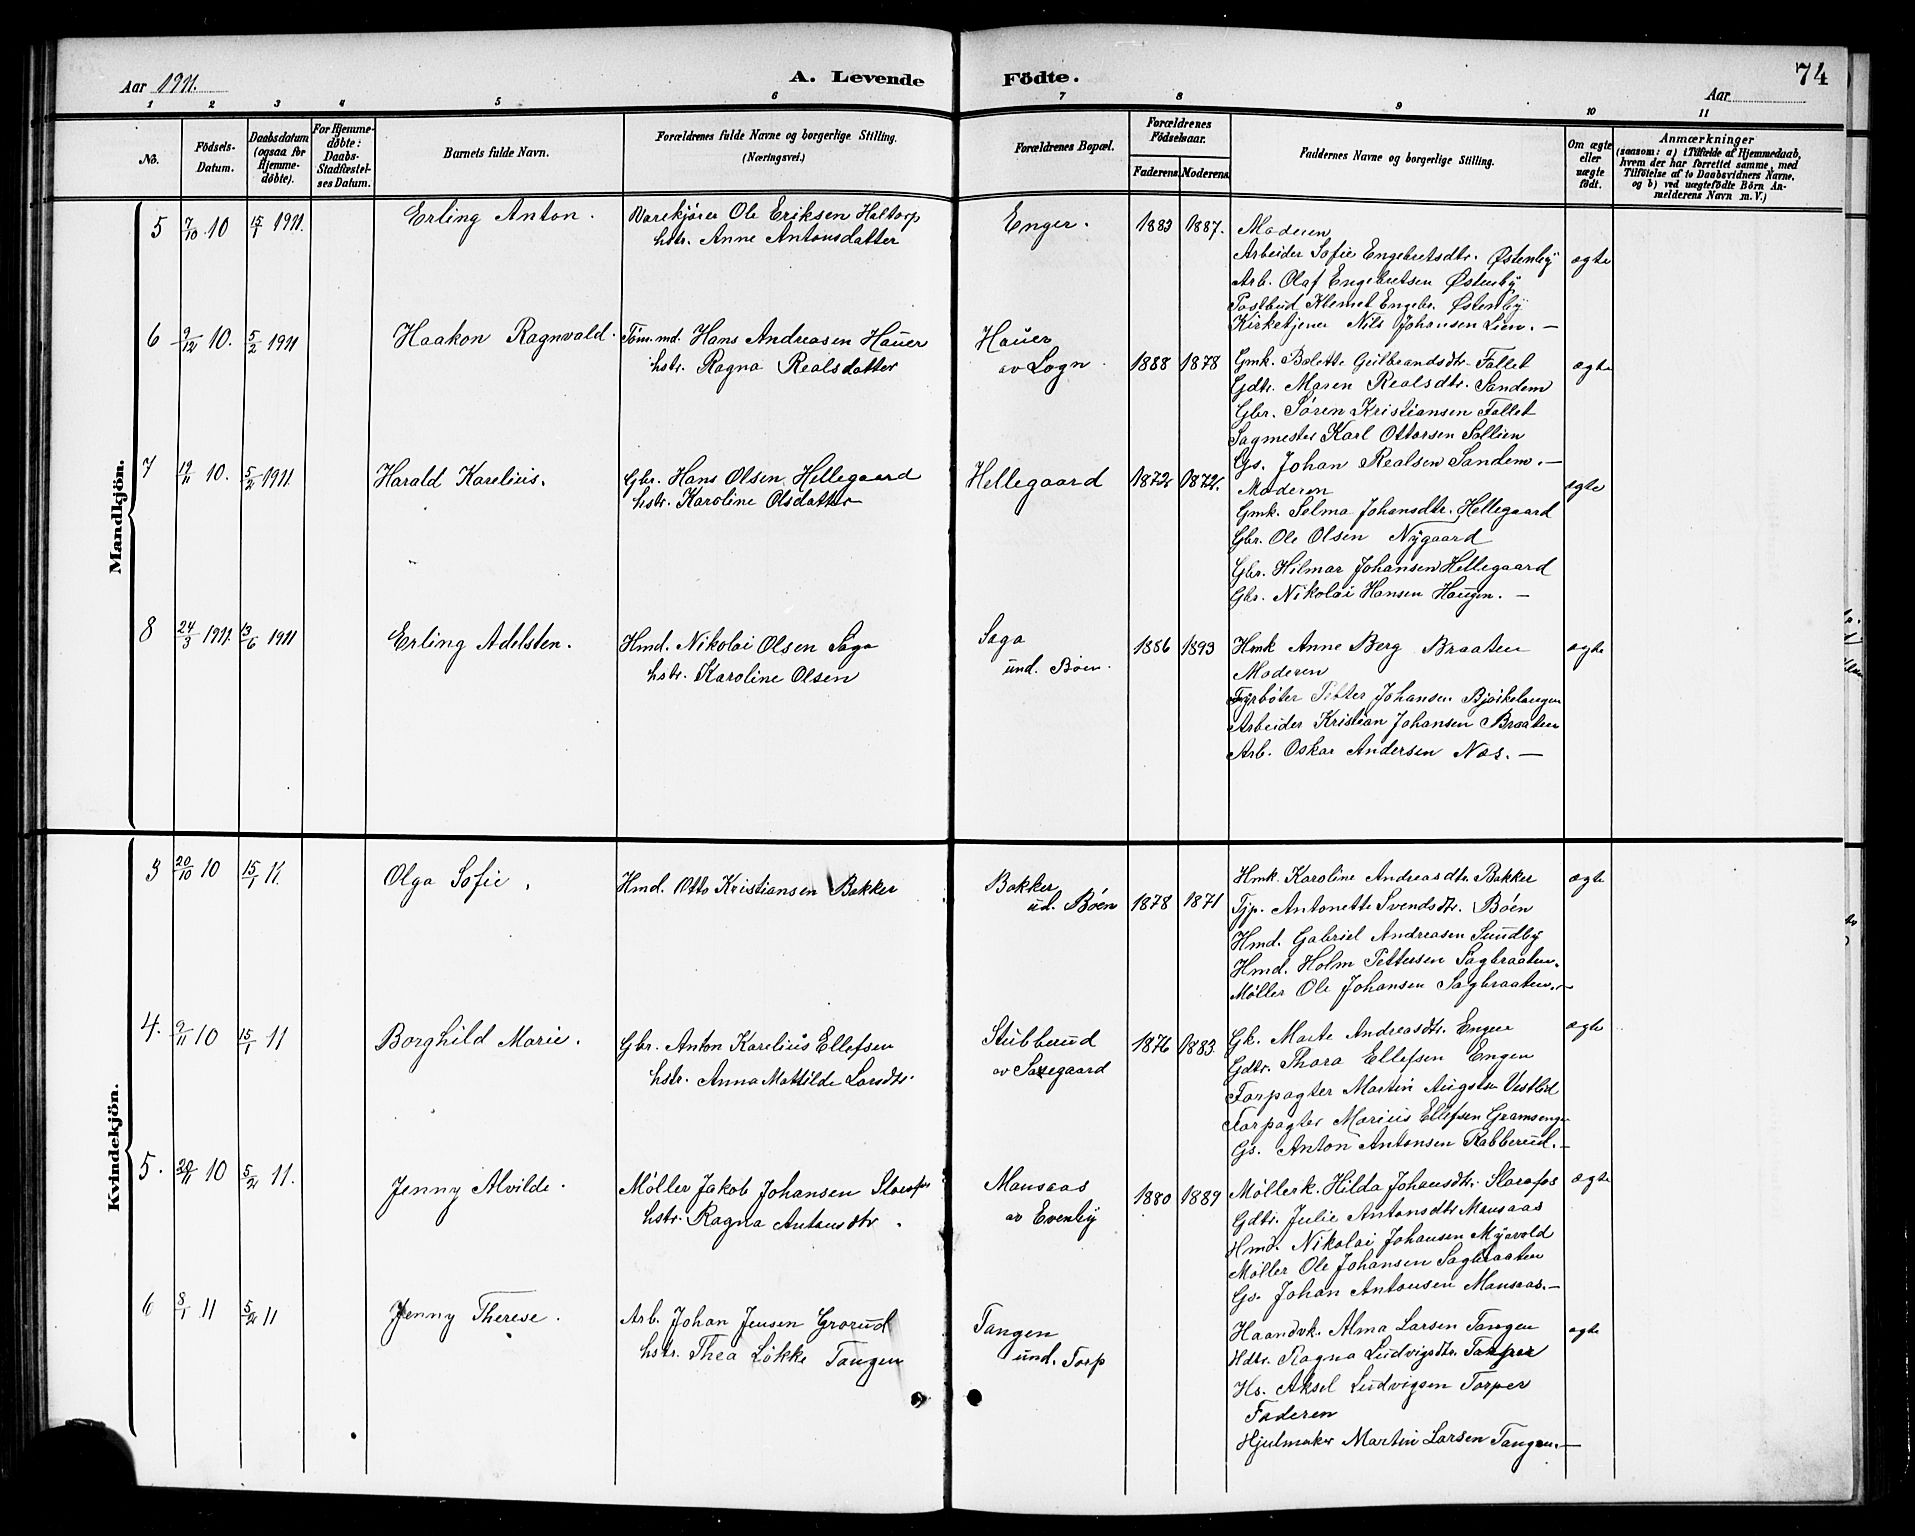 Aar 1911.
A. Levende Födte.
74
Aar
1 2 3 4 5 6 7 8 9 10 11
No.
Födsels-Datum.
Daabsdatum (ogsaa for Hjemme-døbte).
For Hjemme-døbte: Daabs-Stadfæstel-ses Datum.
Barnets fulde Navn.
Forældrenes fulde Navne og borgerlige Stilling.
(Næringsvei.)
Forældrenes Bopæl.
Forældrenes Födselsaar.
Faderens. Moderens.
Faddernes Navne og borgerlige Stilling.
Om ægte eller uægte födt.
Anmærkninger
(saasom: a) i Tilfælde af Hjemmedaab,
hvem der har forrettet samme, med
Tilföielse af to Daabsvidners Navne,
og b) ved uægtefödte Börn An-
melderens Navn m. V.)
Mandkjön.
5 7/10 10 15/1 1911. Erling Anton. Varekjører Ole Eriksen Haltorp Enger. 1883 1887. Moderen
hstr. Anne Antonsdatter
Arbeider Sofie Engebretsdtr. Østenby ægte
Arb. Olaf Engebretsen Østenby
Postbud Klemet Engebr. Østenby
Kirketjener Nils Johansen Lien. —
6 9/12 10. 5/2 1911 Haakon Ragnvald. Tøm.md. Hans Andreasen Hauer Hauer
hstr. Ragna Realsdatter av Logn. 1888 1878 Gmk. Bolette Gulbrandsdtr. Fallet ægte
Gdtr. Maren Realsdtr. Sandem
Gbr. Søren Kristiansen Fallet
Sagmester Karl Ottorsen Sollien
Gs. Johan Realsen Sandem. —
7 10. 5/2 1911 Harald Karelius. Gbr. Hans Olsen Hellegaard Hellegaard 1872 1872. Moderen ægte
hstr. Karoline Olsdatter
Gmk. Selma Johansdtr. Hellegaard
Gbr. Ole Olsen Nygaard
Gbr. Hilmar Johansen Hellegaard
Gbr. Nikolai Hansen Haugen. —
8 24/3 1911 13/6 1911 Erling Adelsten. Hmd. Nikolai Olsen Saga Saga 1886 1893 Hmk Anne Berg Braaten ægte
hstr. Karoline Olsen und. Böen. Moderen
Fyrbøter Petter Johansen Bjørkelangen
Arbeider Kristian Johansen Braaten
Arb. Oskar Andersen Næs. —
Kvindekjön.
3 20/10 10 15/1 11. Olga Sofie. Hmd. Otto Kristiansen Bakker Bakker Hmk. Karoline Andreasdtr. Bakker ægte
ud. Böen 1878 1871 Tjp. Antonette Svendsdtr. Böen
Hmd. Gabriel Andreasen Sundby
Hmd. Holm Pettersen Sagbraaten.
Møller Ole Johansen Sagbraaten. —
4. 9/11 10 15/1 11 Borghild Marie. Gbr. Anton Karelius Ellefsen Stubberud 1876 1883 Gk. Marte Andreasdtr. Engen ægte
hstr. Anna Mathilde Larsdtr. av Saxegaard Gdtr. Thora Ellefsen Engen
Forpagter Martin Augstsn Vestlid
Forpagter Marius Ellefsen Gramsengen
Gs. Anton Antonsen Rabberud. —
5. 10 5/2 11. Jenny Alvilde. Møller Jakob Johansen Slorafos Mausaas 1880 1889 Møllerk. Hilda Johansdtr. Slorafos ægte
hstr. Ragna Antonsdtr. av Evenby Gdtr. Julie Antonsdtr Mausaas
Hmd. Nikolai Johansen Myrvold
Møller Ole Johansen Sagbraaten
Gs. Johan Antonsen Mausaas. —
6 8/1 11 5/2 11 Jenny Therese. Arb. Johan Jensen Grorud Tangen Haandvk. Alma Larsen Tangen ægte
hstr. Thea Løkke Tangen und. Torp Hdtr. Ragna Ludvigsdtr. Torper
Hs. Aksel Ludvigsen Torper
Faderen
Hjulmaker Martin Larsen Tangen. —